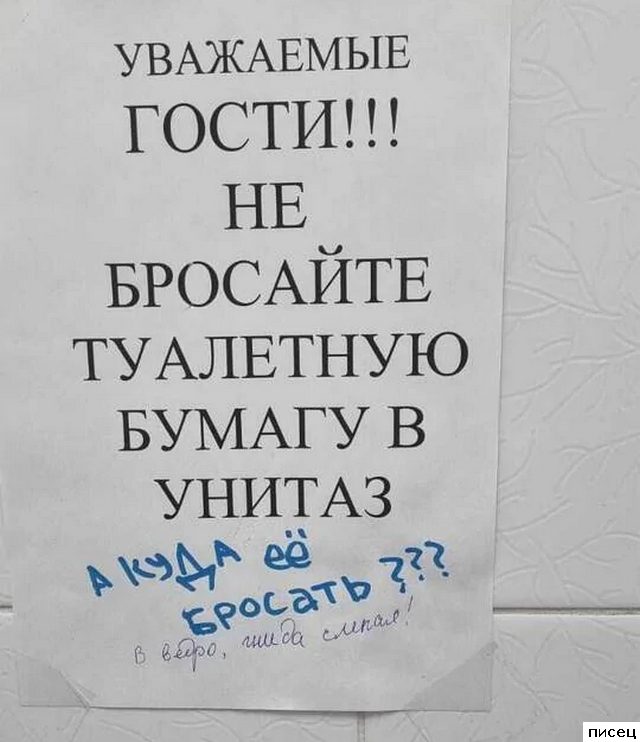 УВАЖАЕМЫЕ
ГОСТИ!!!
НЕ
БРОСАЙТЕ
ТУАЛЕТНУЮ
БУМАГУ В
УНИТАЗ
А КУДА её
БРОСАТЬ ???
В ведро, гнида слепая!
писец